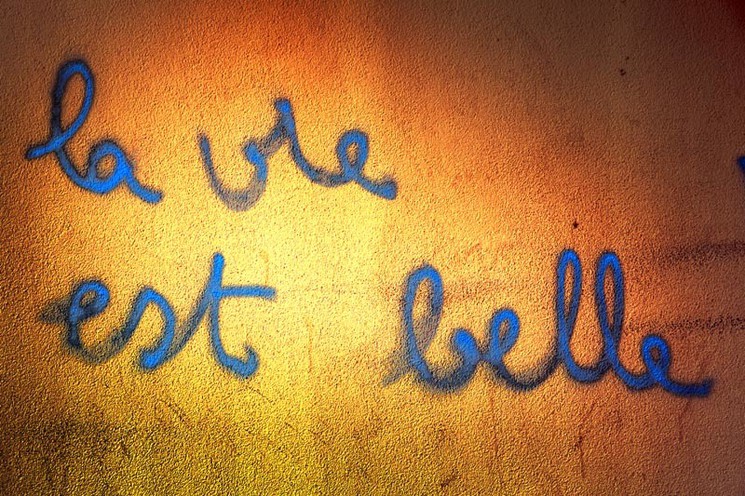 la vie
est belle